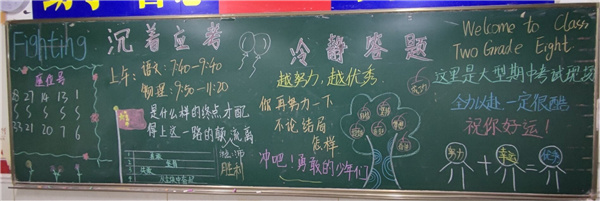 Fighting
沉着应考
冷静答题
Welcome to Class
Two Grade Eight.
座位号
27 14 13 1
33 21 20 7 6
上午: 语文: 7:40-9:40
物理: 9:50-11:20
是什么样的终点,才配
得上这一路的颠沛流离
越努力,越优秀.
你再努力一下
不论结局
怎样
冲吧!勇敢的少年们
胜利
这里是大型期中考试现场
全力以赴 一定很酷
祝你好运!
努力 + 幸运 =